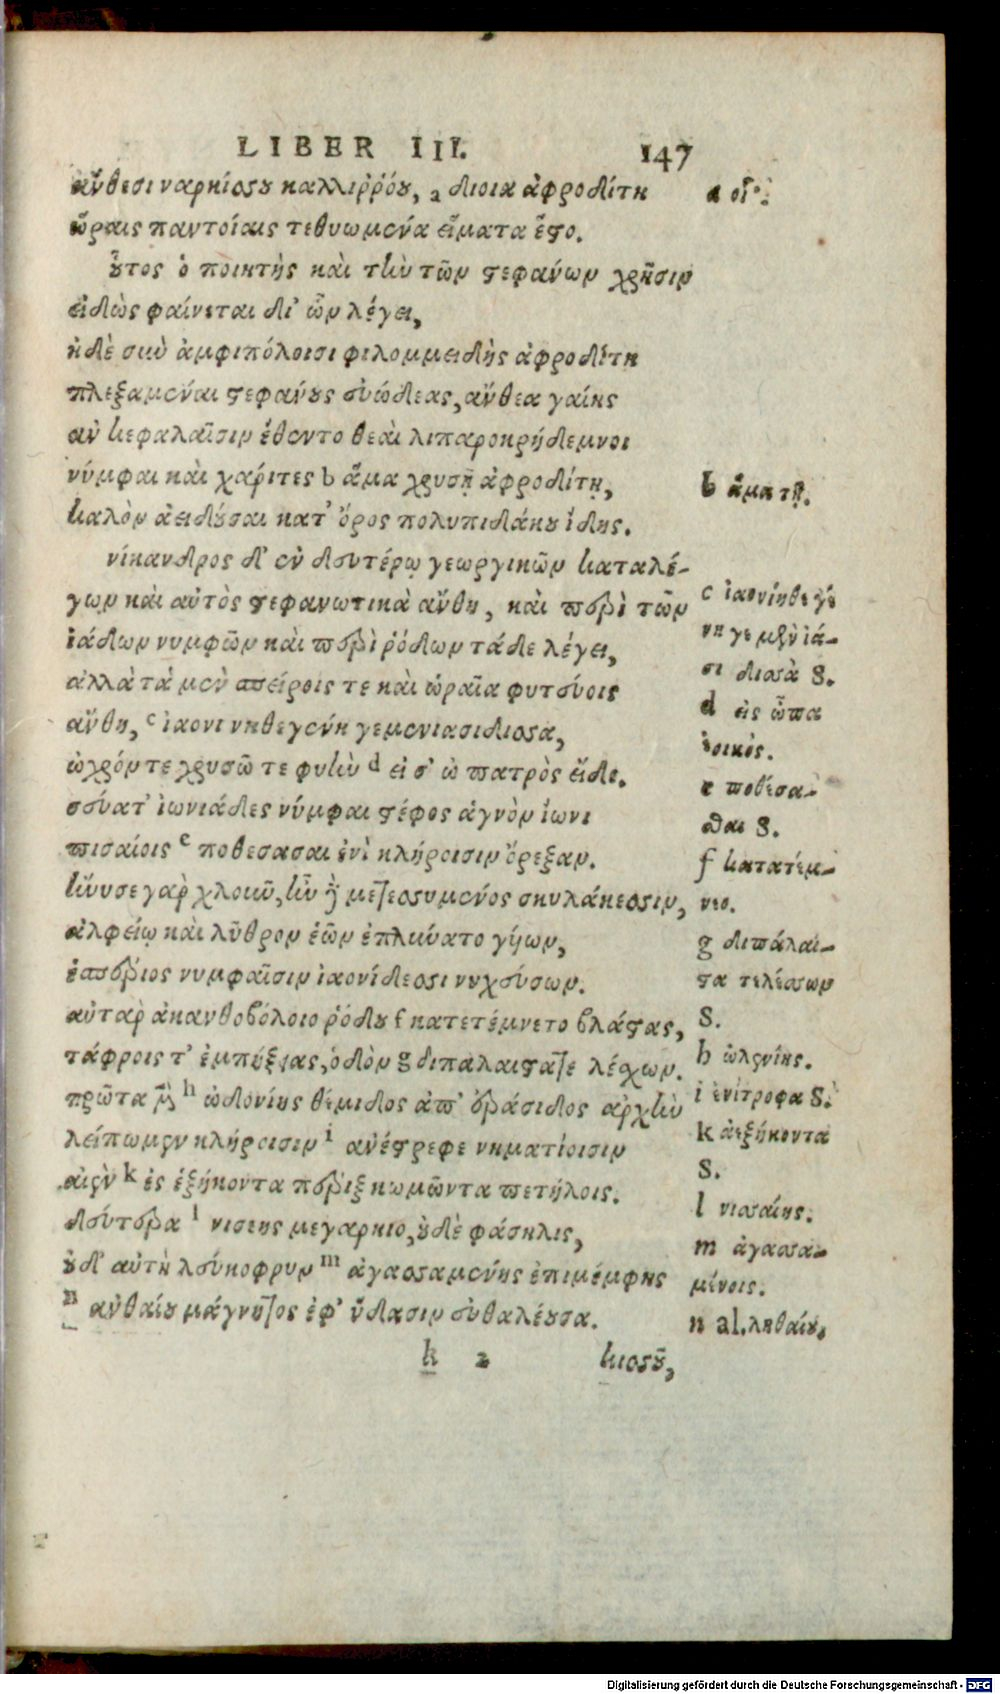 LIBER III. 147
ἄνθεσι ναρκίσσου καλλιῤῥόου, a δ'ιοια ἀφροδίτη
ὥραις παντοίαις τεθυωμένα εἵματα ἕστο.
οὗτος ὁ ποιητὴς καὶ τὴν τῶν στεφάνων χρῆσιν
εἰδὼς φαίνεται δι' ὧν λέγει,
ἡ δὲ σὺν ἀμφιπόλοισι φιλομμειδὴς ἀφροδίτη
πλεξαμέναι στεφάνους εὐώδεας, ἄνθεα γαίης
ἂν κεφαλαῖσιν ἔθεντο θεαὶ λιπαροκρήδεμνοι
νύμφαι καὶ χάριτες b ἅμα χρυσῇ ἀφροδίτῃ,
καλὸν ἀείδουσαι κατ' ὄρος πολυπιδάκου ἴδης.
νίκανδρος δ' ἐν δευτέρῳ γεωργικῶν καταλέ-
γων καὶ αὐτὸς στεφανωτικὰ ἄνθη, καὶ περὶ τῶν
ἰάδων νυμφῶν καὶ περὶ ῥόδων τάδε λέγει,
ἀλλὰ τὰ μὲν σπείροις τε καὶ ὡραῖα φυτεύοις
ἄνθη, c ἰαονι νηθεγενη γεμενιασιδιοσα,
ὠχρόν τε χρυσῶ τε φυὴν d εἰ σ' ὠ πατρὸς εἶδε.
σεύατ' ἰωνιάδες νύμφαι στέφος ἁγνὸν ἴωνι
πισαίοις e ποθεσασαι ἐνὶ κλήροισιν ὄρεξαν.
ἤνυσε γαρ χλουν, ἦν καὶ μετεοσυμένος σκυλάκεσσιν,
ἀλφείῳ καὶ λύθρον ἑῶν ἐπλύνατο γύων,
ἑσπέριος νυμφαῖσιν ἰαονίδεσσι νυχεύσων.
αὐτὰρ ἀκανθοβόλοιο ῥόδου f κατετέμνετο βλάστας,
τάφροις τ' ἐμπήξιας, ὁδὸν g διπαλαισταῖε λέσχων.
πρῶτα μὲν h ὠδονίης θέμιδος ἀπ' ὀράσιδος ἀρχὴν
λείπωμεν κλήροισιν i ἀνέστρεφε νηματίοισιν
αἰὲν k ἐς ἑξήκοντα πέριξ κωμῶντα πετήλοις.
δεύτερα l νισεης μεγαρηιο, οὐδὲ φάσηλις,
οὐδ' αὐτὴ λευκοφρυν m ἀγασσαμένης ἐπιμέμφης
n ἀνθαίου μάγνητος ἐφ' ὕδασιν εὐθαλέουσα.
k 2 κισσοῦ,
b ἅμα τῇ.
c ἰαονίηθε γέ
νη γε μὲν ἰά-
σι δισσὰ S.
d εἰς ὦπα
ἐοικός.
e ποθέσα-
σθαι S.
f κατατέμ-
νεο.
g διπάλαι-
στα τελέσσων
S.
h ὠλενίης.
i ἐνίτροφα S.
k ἀεξήκοντα
S.
l νισσαίης.
m ἀγασσα-
μένοις.
n al. ληθαίου,
Digitalisierung gefördert durch die Deutsche Forschungsgemeinschaft - DFG